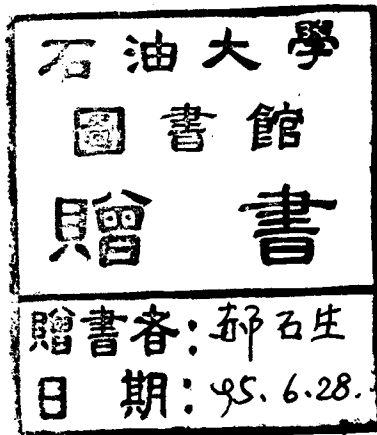 石油大學
圖書館
贈書
贈書者:郝石生
日期:95.6.28.